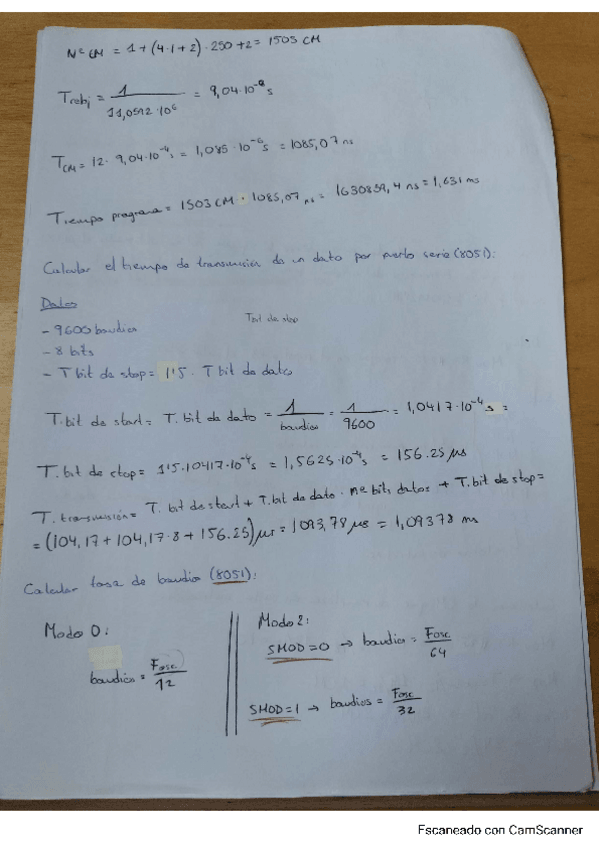 Nº CM = 1 + (4·1+2) · 250 + 2 = 1503 CM
Treloj = 1 / 11,0592·10⁶ = 9,04·10⁻⁸ s
TCM = 12 · 9,04·10⁻⁸ s = 1,085·10⁻⁶ s = 1085,07 ns
Tiempo programa = 1503 CM · 1085,07 ns = 1630859,4 ns = 1,631 ms
Calcular el tiempo de transmisión de un dato por puerto serie (8051):
Datos
- 9600 baudios
T bit de stop
- 8 bits
- T bit de stop = 1'5 · T bit de dato
T. bit de start = T. bit de dato = 1 / baudios = 1 / 9600 = 1,0417·10⁻⁴ s =
T. bit de stop = 1'5·10417·10⁻⁴ s = 1,5625·10⁻⁴ s = 156.25 µs
T. transmisión = T. bit de start + T. bit de dato · nº bits datos + T. bit de stop =
= (104,17 + 104,17·8 + 156.25) µs = 1093,78 µs = 1,09378 ms
Calcular tasa de baudio (8051):
Modo 0:
baudios = Fosc / 12
Modo 2:
SMOD=0 → baudios = Fosc / 64
SMOD=1 → baudios = Fosc / 32
Escaneado con CamScanner